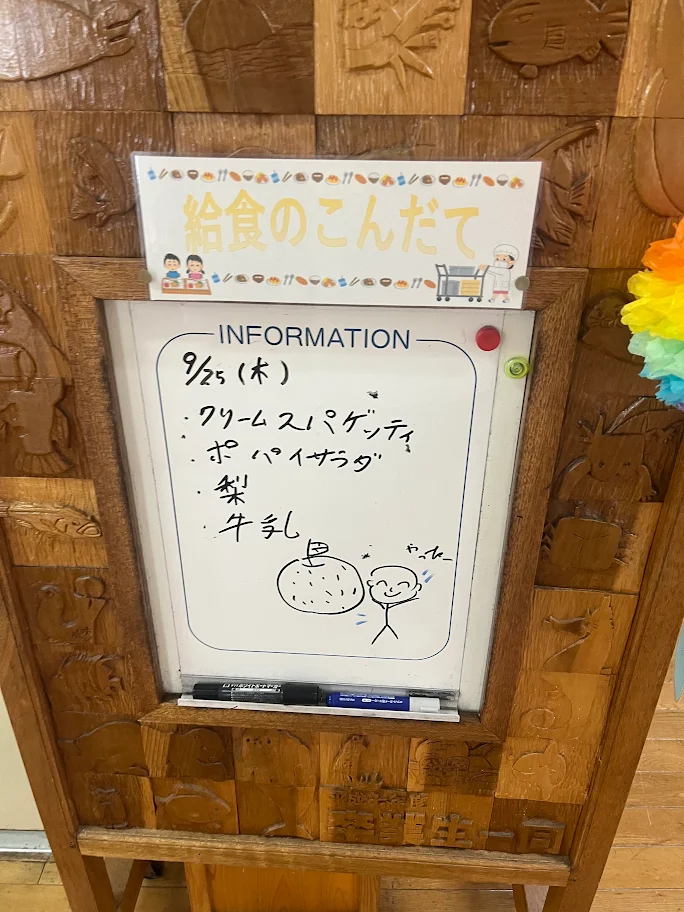 給食のこんだて
INFORMATION
9/25(木)
・クリームスパゲッティ
・ポパイサラダ
・梨
・牛乳
やったー
卒業生一同